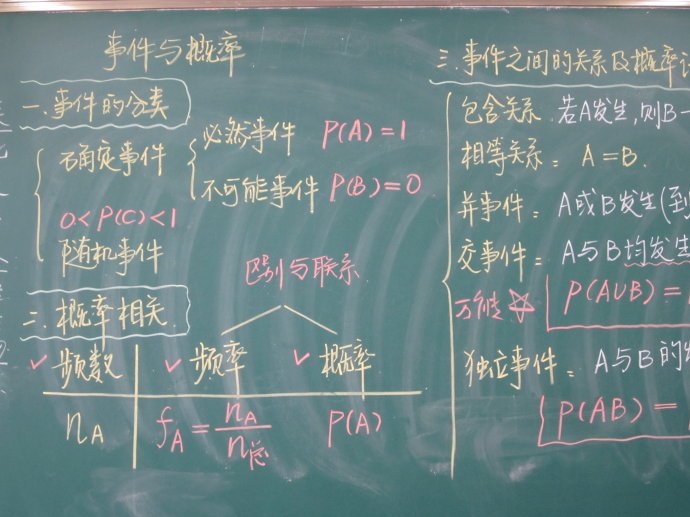 事件与概率
一.事件的分类
确定事件
必然事件 P(A)=1
不可能事件 P(B)=0
0<P(C)<1
随机事件
区别与联系
二.概率相关
✓频数 ✓频率 ✓概率
nA fA=nA/n总 P(A)
三.事件之间的关系及概率
包含关系.若A发生,则B一
相等关系: A=B.
并事件: A或B发生(到
交事件: A与B均发生
万能☆ P(A∪B)=
独立事件: A与B的
P(AB)=